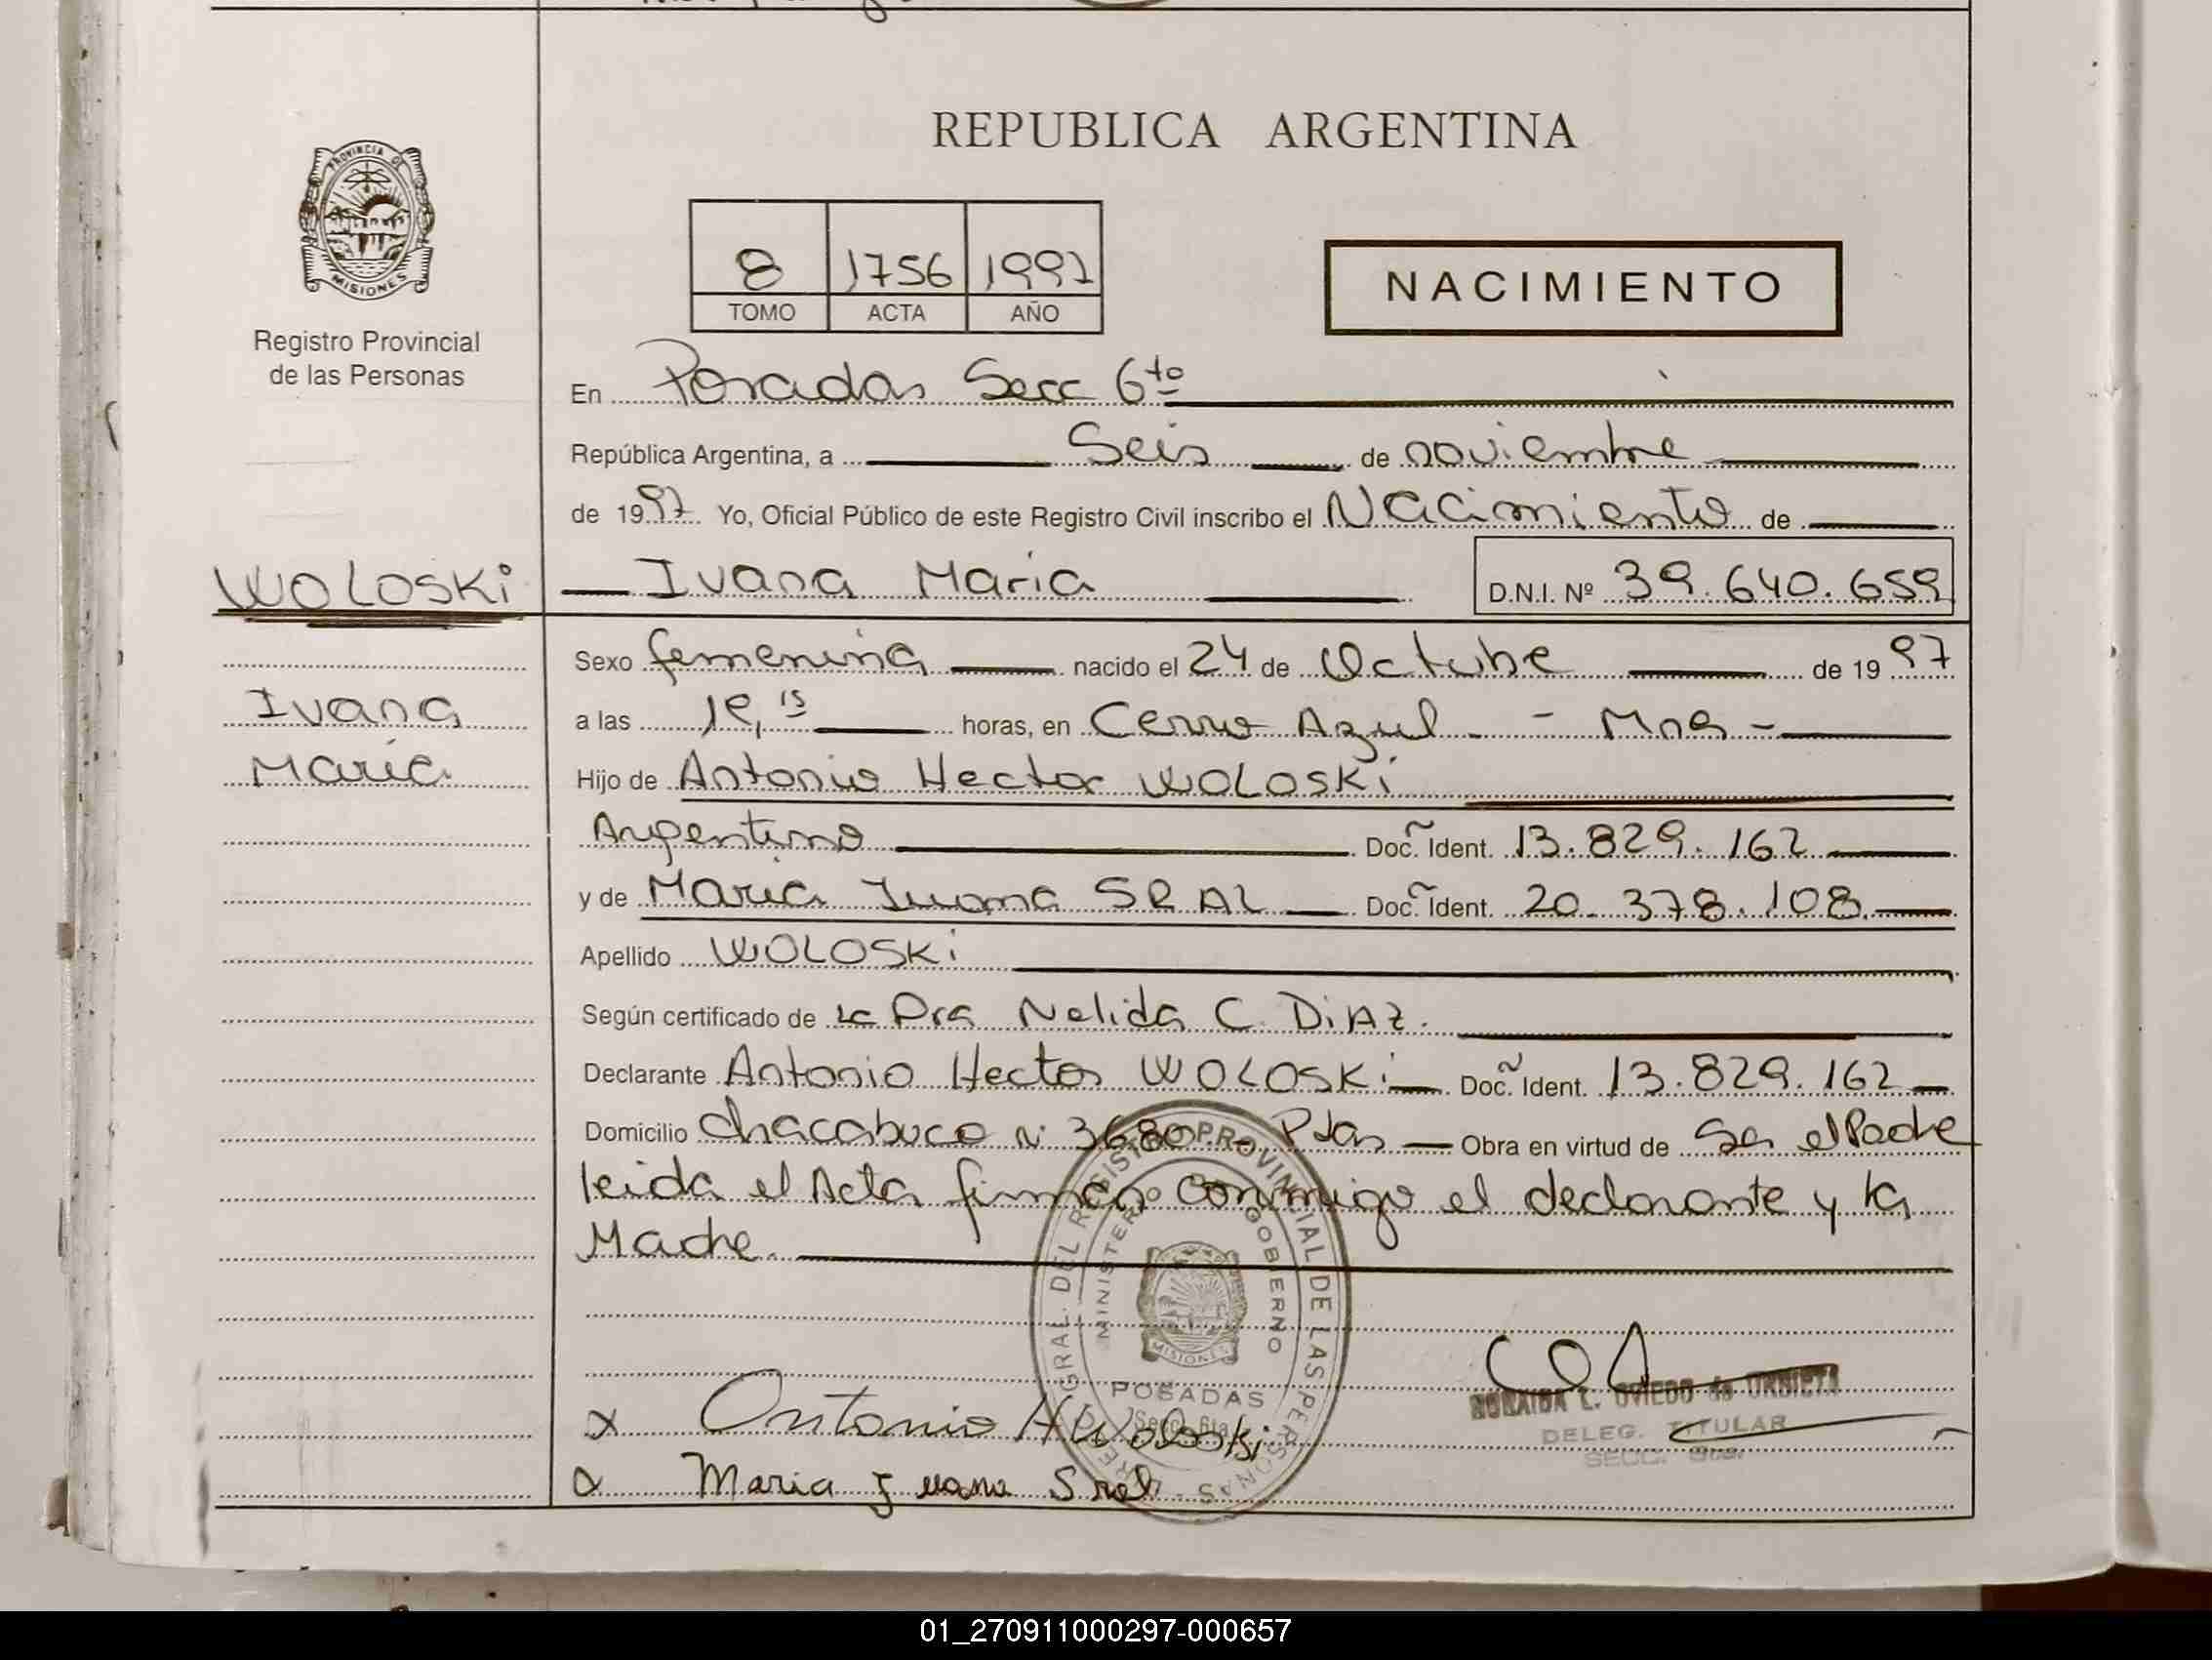 REPUBLICA ARGENTINA
PROVINCIA DE
MISIONES
Registro Provincial
de las Personas
8 1756 1997
TOMO ACTA AÑO
NACIMIENTO
En Posadas Secc 6to
República Argentina, a Seis de noviembre
de 1997 Yo, Oficial Público de este Registro Civil inscribo el Nacimiento de
WOLOSKi
Ivana Maria D.N.I. Nº 39.640.659
Sexo femenina nacido el 24 de Octubre de 1997
Ivana
María
a las horas, en Cerro Azul - Mnes -
Hijo de Antonio Hector WOLOSKi
Argentino Doc. Ident. 13.829.162
y de Maria Juana SRAL Doc. Ident. 20.378.108
Apellido WOLOSKi
Según certificado de La Dra Nelida C. DiAZ.
Declarante Antonio Hector WOLOSKi Doc. Ident. 13.829.162
Domicilio Chacabuco Nº 3680 - Pdas Obra en virtud de Ser el Padre
leida el Acta firman conmigo el declarante y la
Madre.
GRAL. DEL REGISTRO PROVINCIAL DE LAS PERSONAS
MINISTERIO GOBIERNO
MISIONES
POSADAS
Secc. 6ta.
x Antonio H Woloski
x Maria Juana Sral
L. OVIEDO de URBIETA
DELEG. TITULAR
SECC. 6ta.
01_270911000297-000657